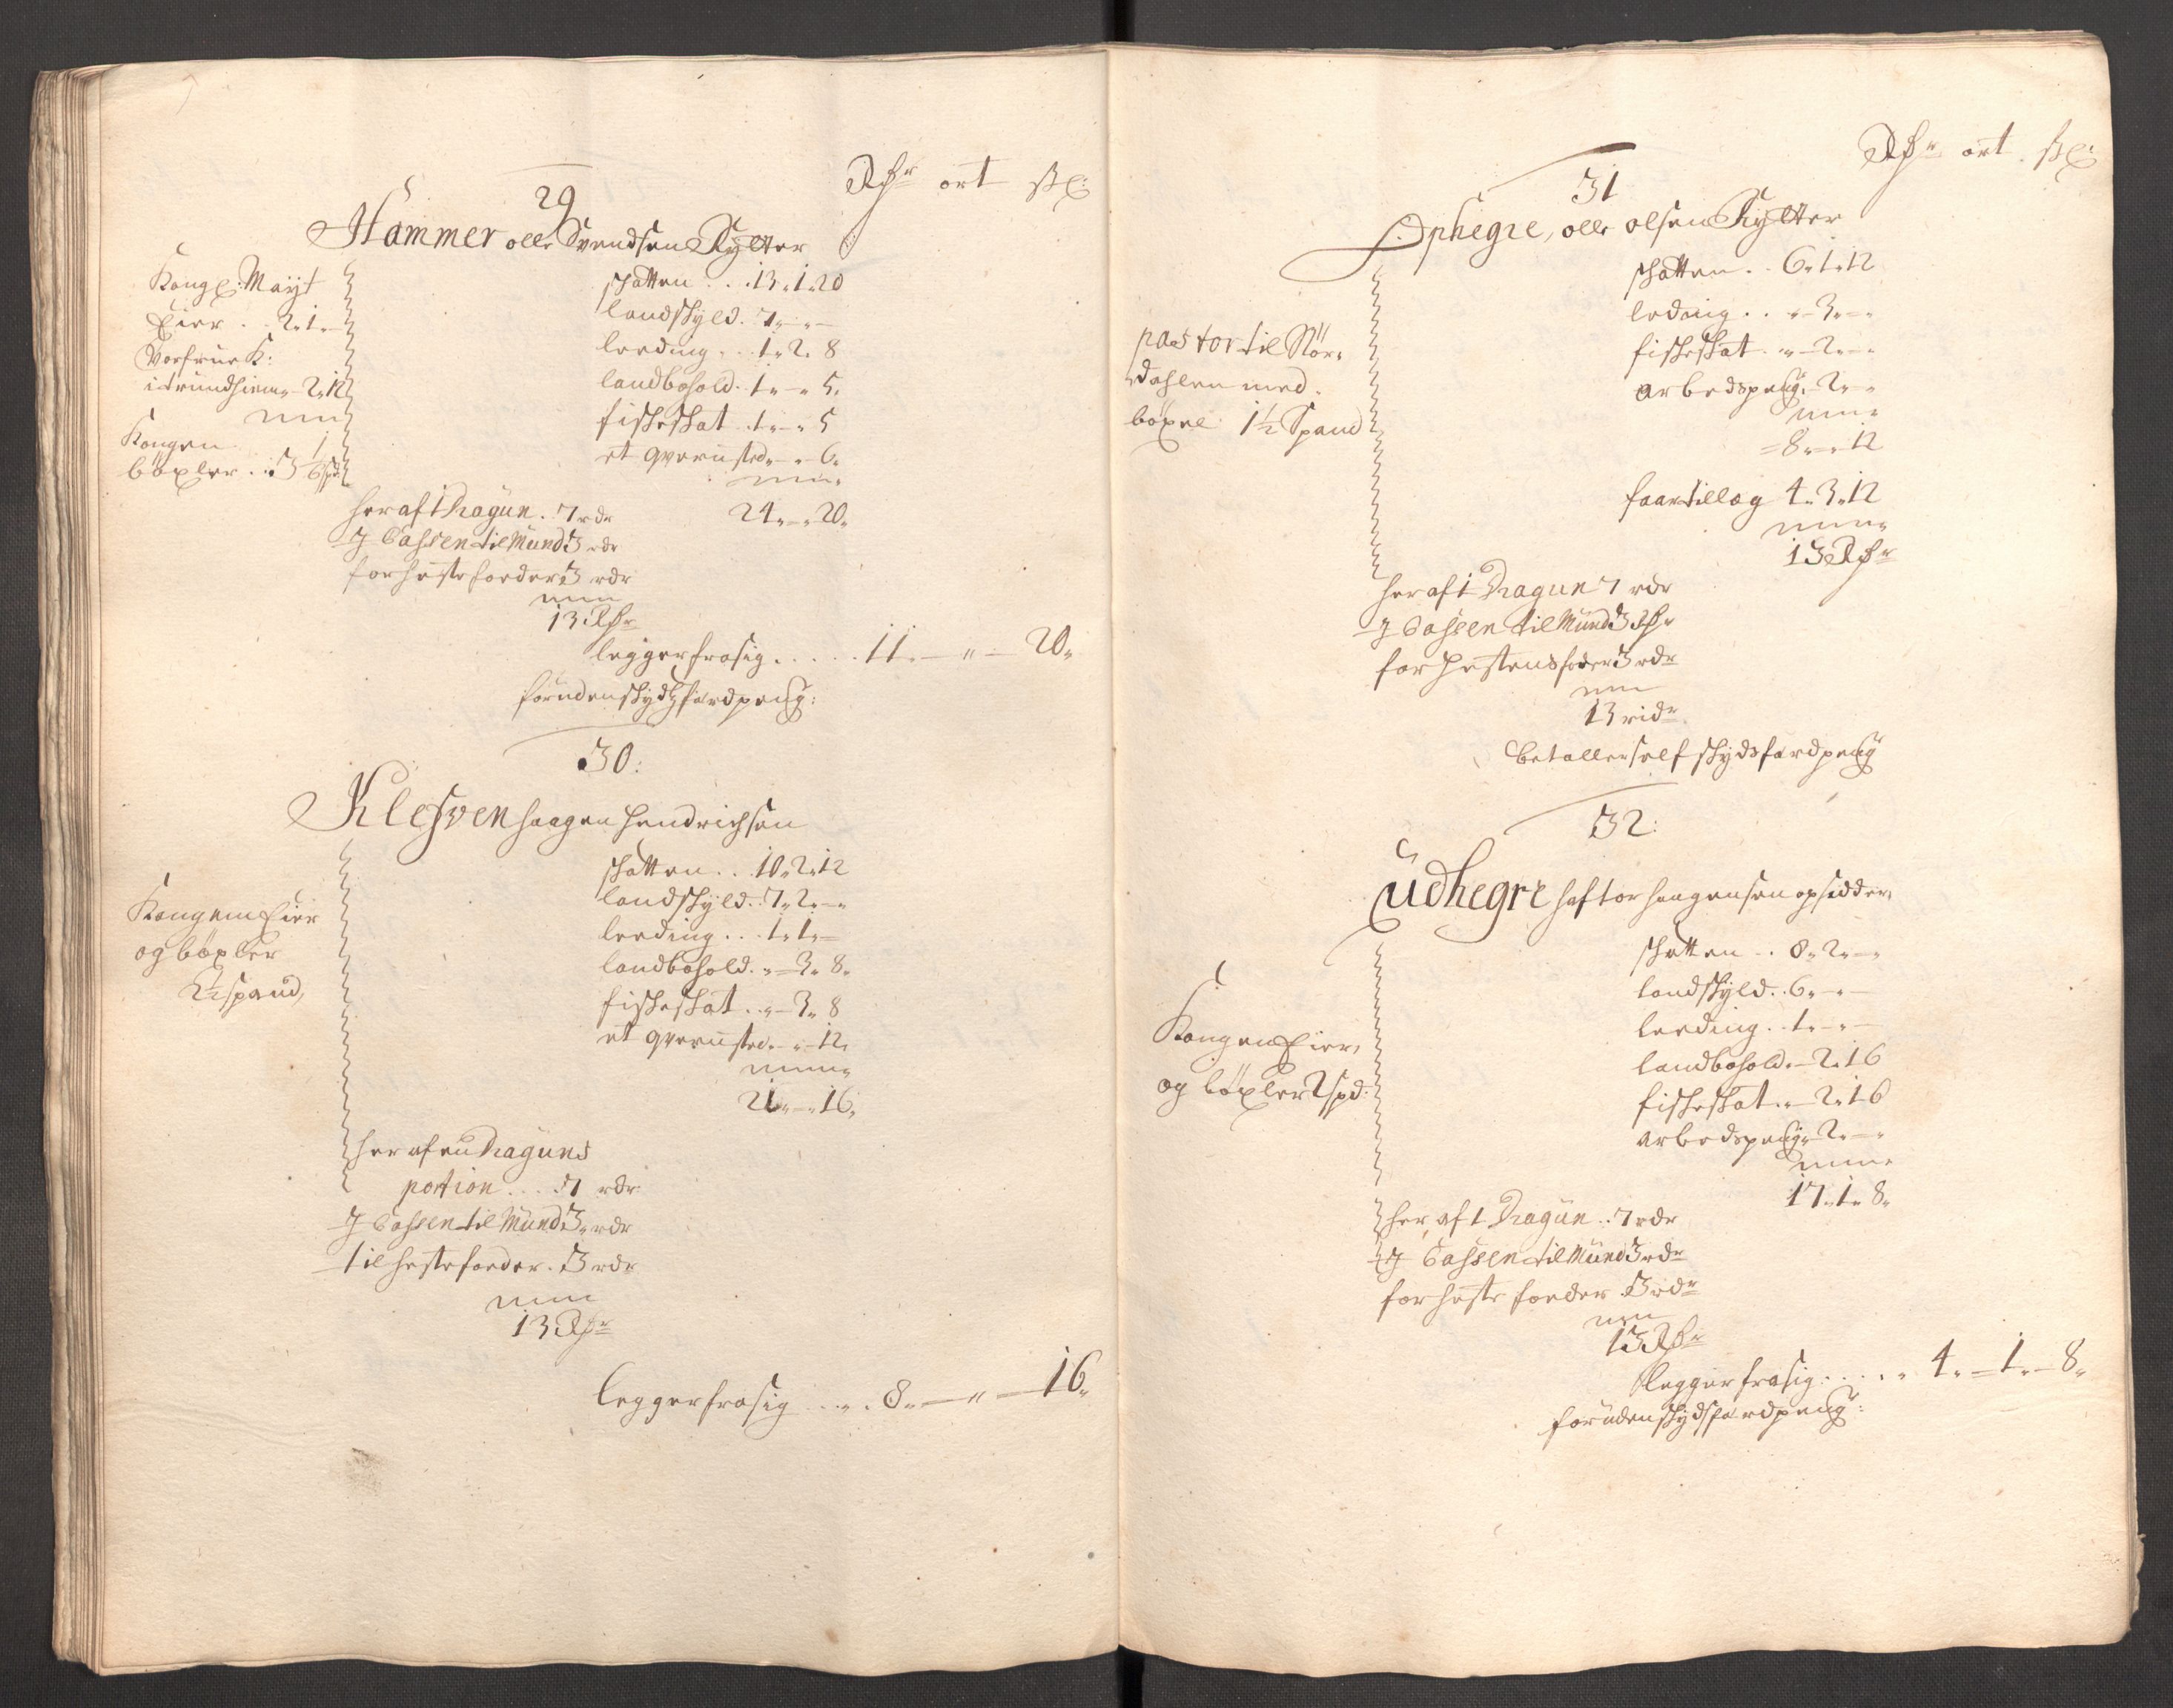 Rdr ort ß:
29
Hammer olle Svendsen Rytter
Kongl: Mayt
Eier . . 2.1.-
Vorfrue K:
i Trundhiem - 2.12
Kongen
böxler . . 3 1/6 spd
schatten . . . 13.1.20
landskyld . 7.-.-
leeding . . . 1.2.8
landbohold . 1.-.5.
fiskeskat . 1.-.5
et qvernsted - . 6.
24.-.20.
her af 1 Dragun . 7 rdr
J Cassen til Mund: 3 rdr
for heste foeder 3 rdr
13 Rdr
legger fra sig . . . . . 11.-"-20.
foruden skydsfærd peng:
30:
Klefven haagen hendrichsen
Kongen Eier
og böxler
2½ spand,
schatten . . 10.2.12
landskyld . . 7.2.-
leeding . . . 1.1.-
landbohold . - 3.8.
fiskeskat . . - 3.8
et qvernsted . - 12.
21.-.16.
her af en Draguns
portion . . . . 7 rdr
J Cassen til Mund: 3. rdr
til heste foeder . 3 rdr
13 Rdr
legger fra sig . . . . 8.-"-16.
Rdr ort . ß:
31
Ophegre, olle olsen Rytter
pastor til Stör-
dahlen med
böxel 1½ Spand
schatten . . 6.1.12
leding . . - 3.-
fiskeskat . - 2.-
arbedspeng. - 2.-
8.-.12
faar tillæg 4.3.12
13 Rdr
her af 1 Dragun 7 rdr
J Cassen til Mund: 3 Rdr
for hestens foder 3 rdr
13 ridr
betaller self skydsfærd peng
32:
Üdhegre haftor haagensen opsidder,
Kongen Eier,
og böxler 2 spd:
schatten . . 8.2.-
landskyld . . 6.-.-
leeding . . 1.-.-
landbohold . - 2.16
fiskeskat . . - 2.16
arbedspeng. - 2.-
17.1.8.
her af 1 Dragun . . 7 rdr
J Cassen til Mund: 3 rdr
for heste foeder 3 rdr
13 Rdr
legger fra sig . . . . . 4.-1.-8.
foruden skydsfærd peng: